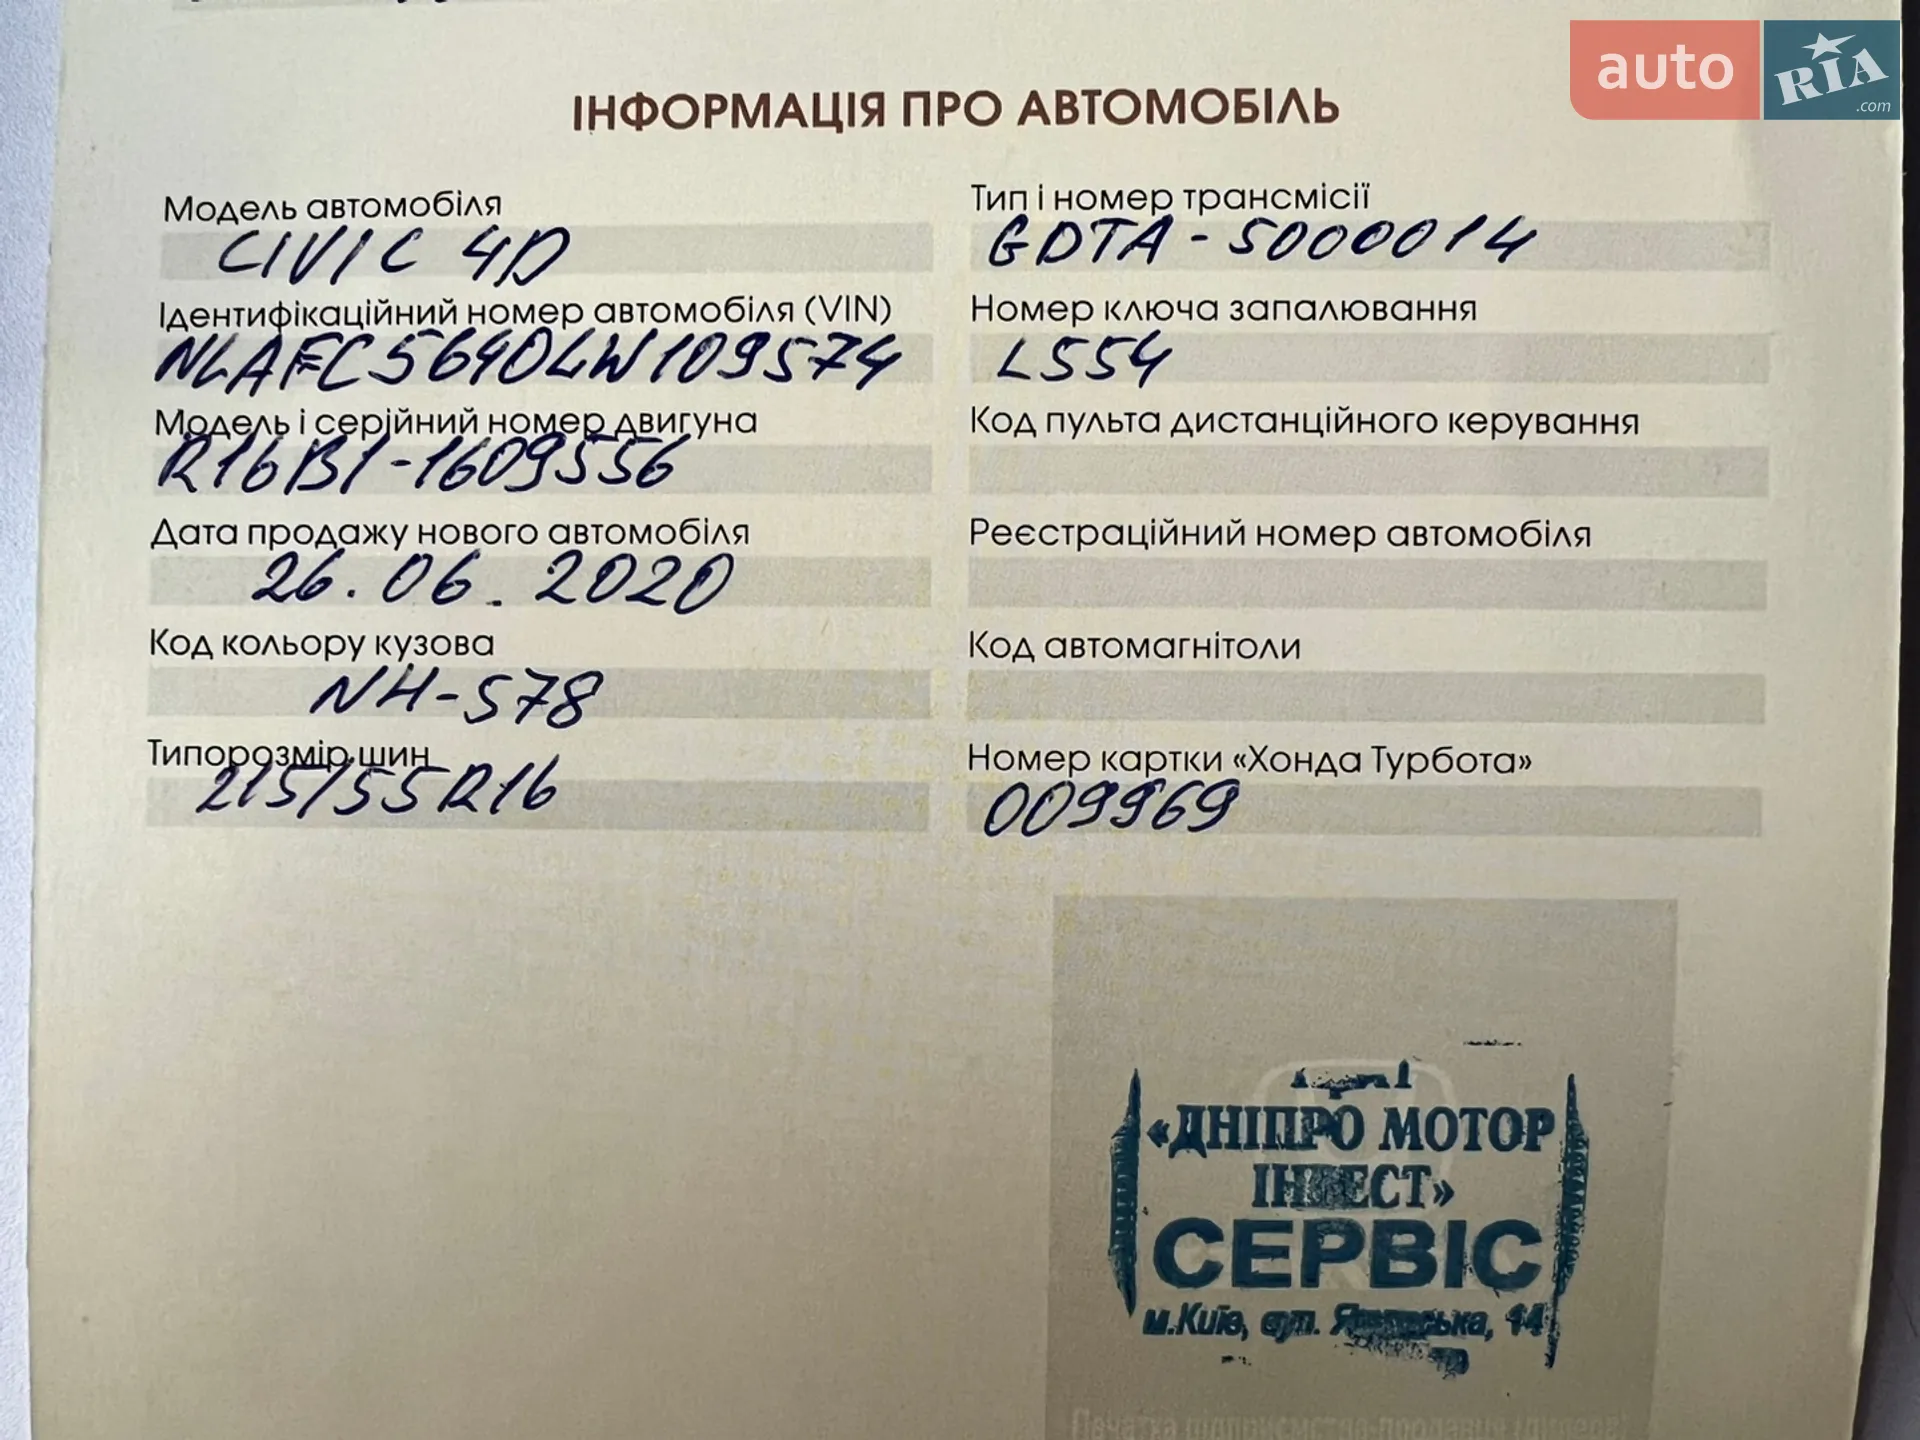 auto RIA .com
ІНФОРМАЦІЯ ПРО АВТОМОБІЛЬ
Модель автомобіля
CIVIC 4D
Ідентифікаційний номер автомобіля (VIN)
NLAFC5640LW109574
Модель і серійний номер двигуна
R16B1-1609556
Дата продажу нового автомобіля
26.06.2020
Код кольору кузова
NH-578
Типорозмір шин
215/55R16
Тип і номер трансмісії
GDTA-5000014
Номер ключа запалювання
L554
Код пульта дистанційного керування
Реєстраційний номер автомобіля
Код автомагнітоли
Номер картки «Хонда Турбота»
009969
«ДНІПРО МОТОР
ІНВЕСТ»
СЕРВІС
м.Київ, вул. 14
Печатка підприємства-продавця (дилера)